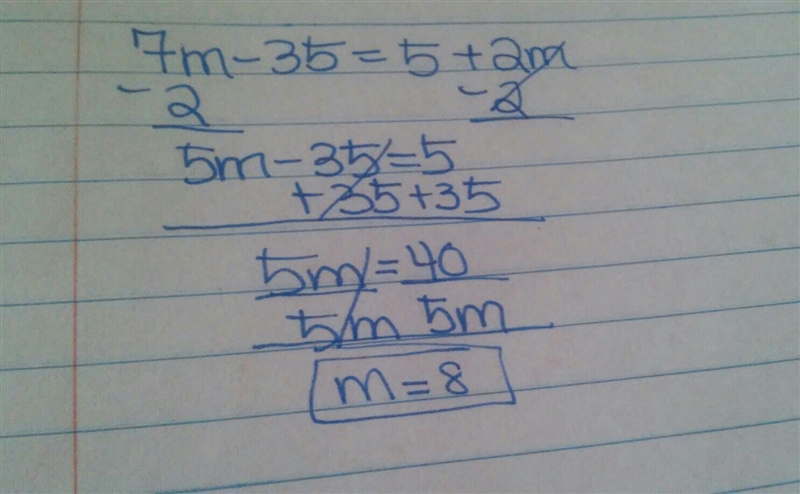 7m-35=5+2m
-2 -2
5m-35=5
+35+35
5m=40
5m 5m
m=8